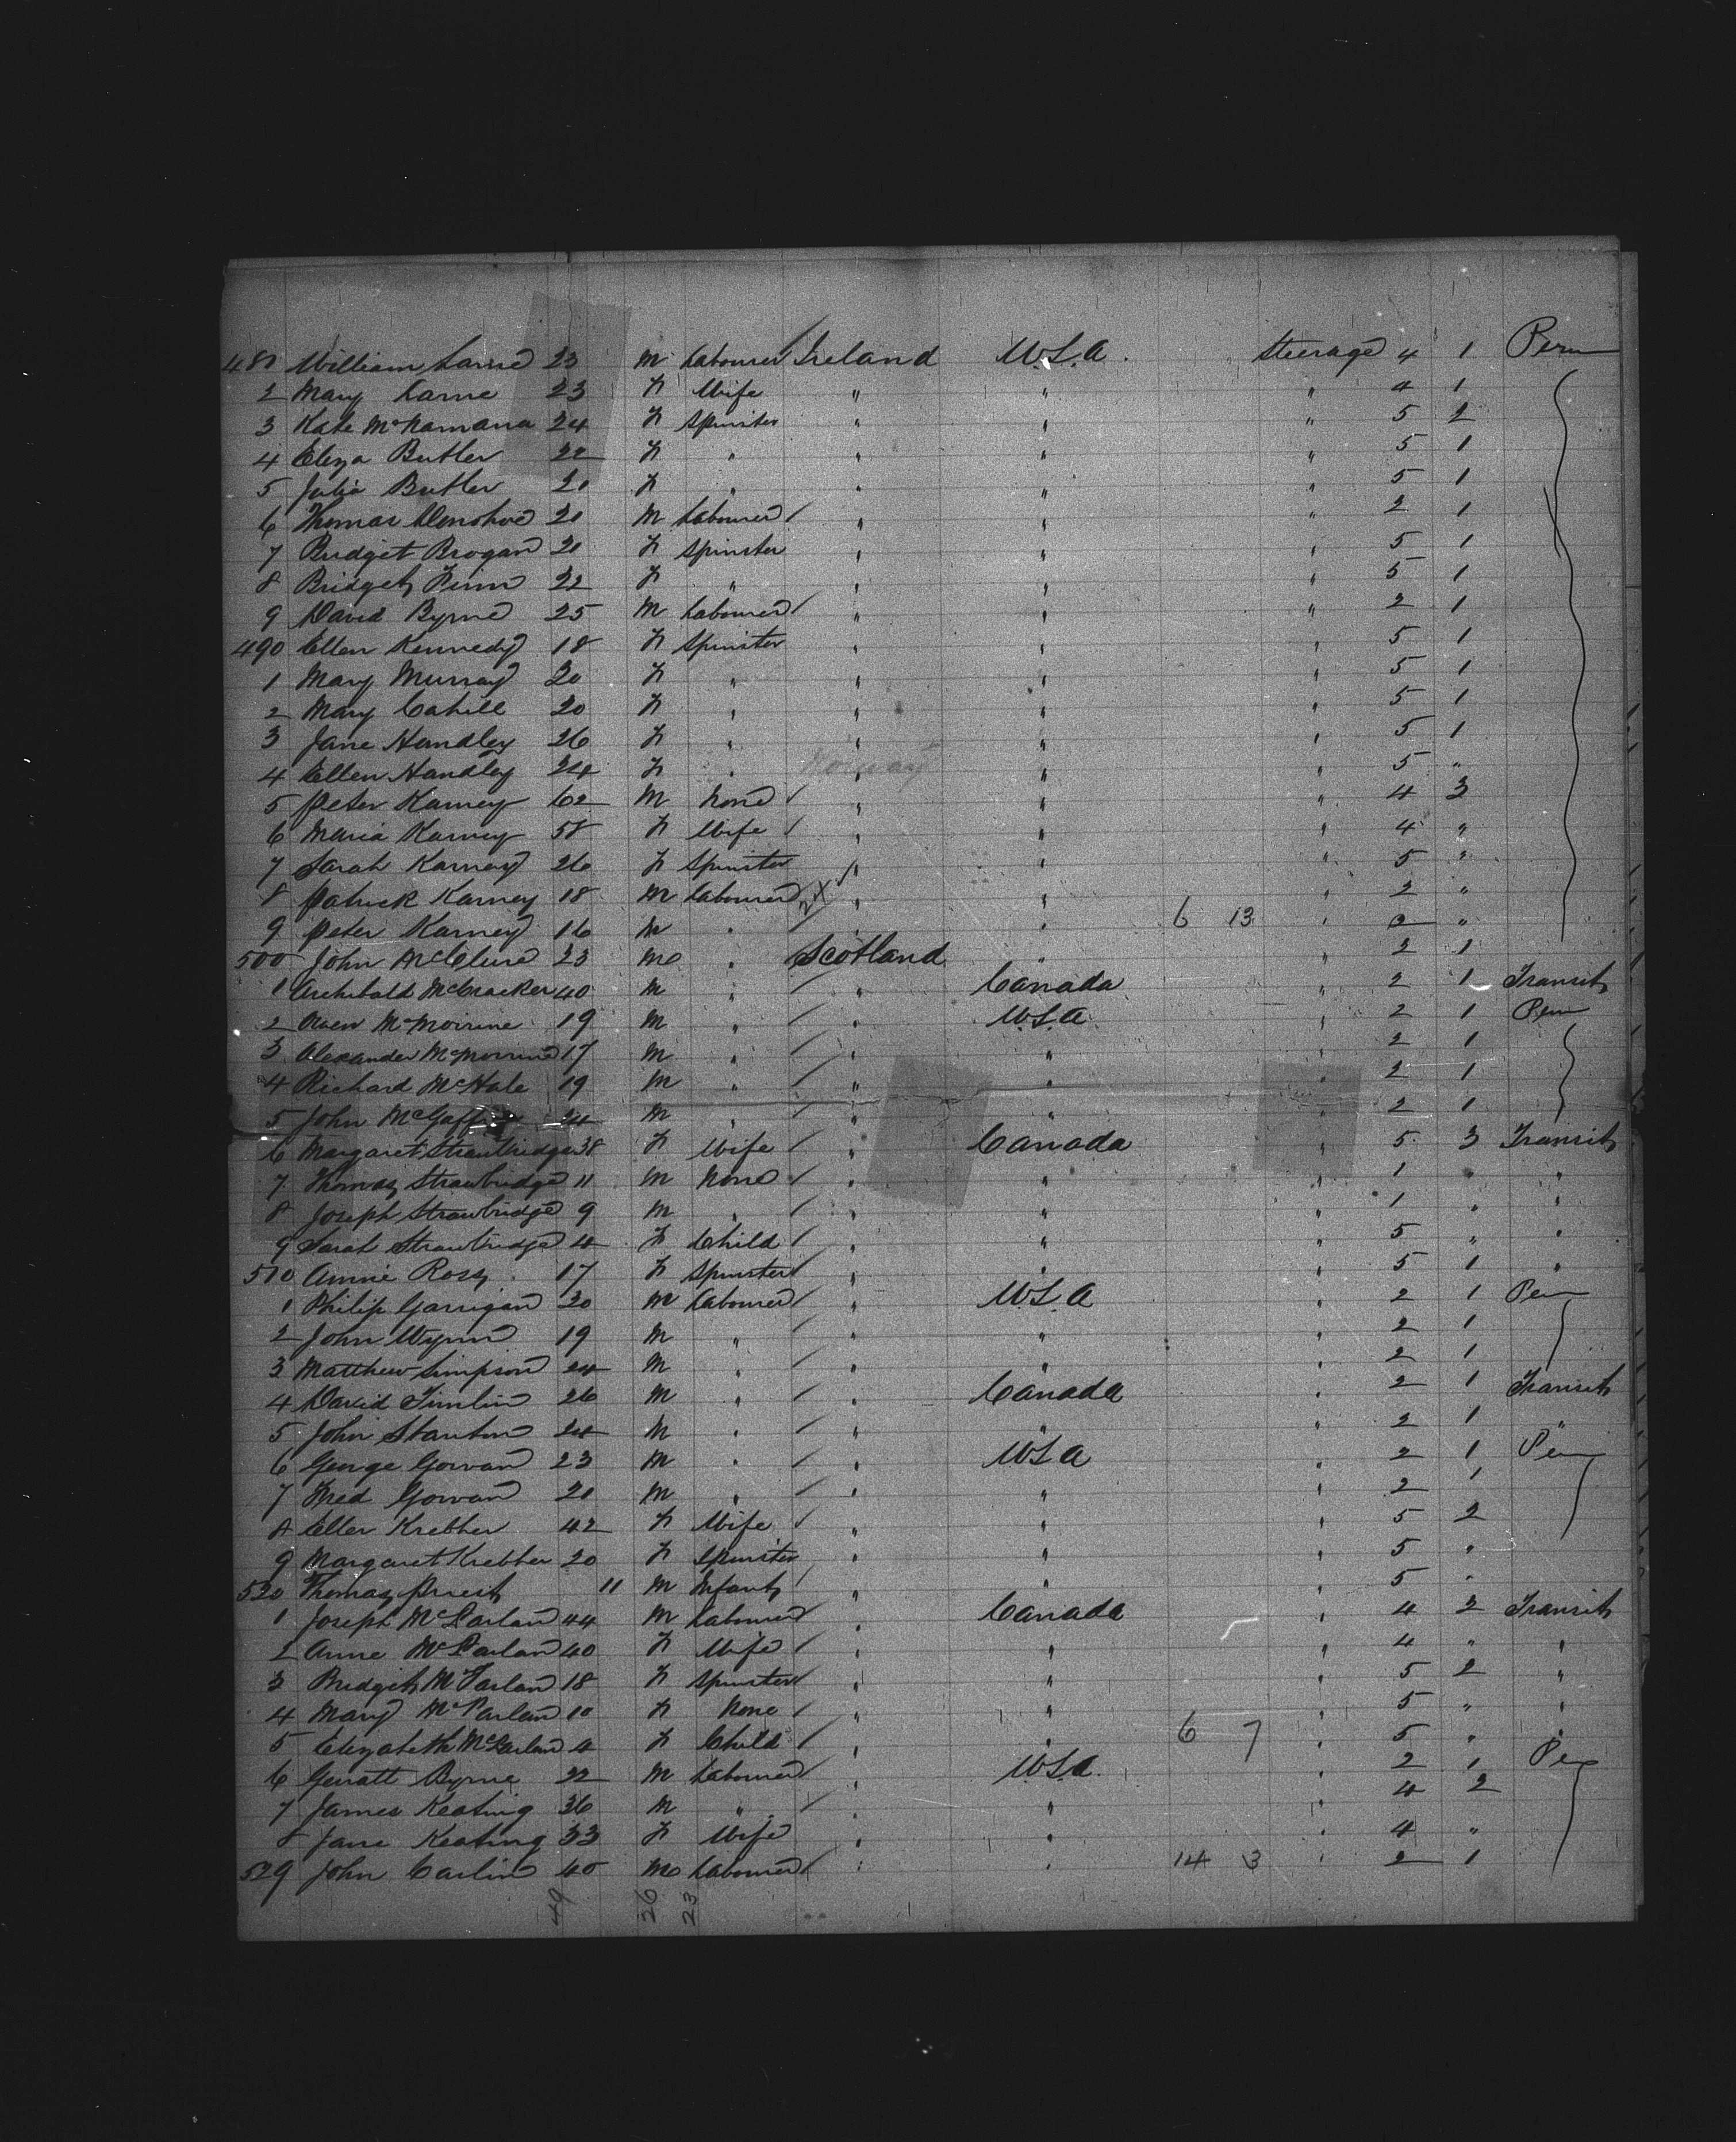 481 William Larne 23 M Labourer Ireland U.S.A. Steerage 4 1 Perm
2 Mary Larne 23 F Wife " " " 4 1
3 Kate McNamara 24 F Spinster " " " 5 2
4 Eliza Butler 22 F " " " " 5 1
5 Julia Butler 20 F " " " " 5 1
6 Thomas Donohoe 20 M Labourer / " " " 2 1
7 Bridget Brogan 20 F Spinster " " " 5 1
8 Bridget Finn 22 F " " " " 5 1
9 David Byrne 25 M Labourer / " " " 2 1
490 Ellen Kennedy 18 F Spinster " " " 5 1
1 Mary Murray 20 F " " " " 5 1
2 Mary Cahill 20 F " " " " 5 1
3 Jane Handley 26 F " " " " 5 1
4 Ellen Handley 24 F " Norway " " 5 "
5 Peter Karney 62 M None / " " " 4 3
6 Maria Karney 58 F Wife / " " " 4 "
7 Sarah Karney 26 F Spinster " " " 5 "
8 Patrick Karney 18 M Labourer " " " 2 "
9 Peter Karney 16 M " / " " 6 13 " 2 "
500 John McClure 23 M " Scotland " " 2 1
1 Archibald McCracken 40 M " / " Canada " 2 1 Transit
2 Owen McMorrine 19 M " / " U.S.A " 2 1 Perm
3 Alexander McMorrine 17 M " / " " " 2 1
4 Richard McHale 19 M " / " " " 2 1
5 John 24 M " / " " " 2 1
6 Margaret Strawbridge 38 F Wife / " Canada " 5 3 Transit
7 Thomas Strawbridge 11 M None / " " " 1 " "
8 Joseph Strawbridge 9 M " / " " " 1 " "
9 Sarah Strawbridge 4 F Child / " " " 5 " "
510 Annie Ross 17 F Spinster / " " " 5 1 "
1 Philip Garrigan 20 M Labourer / " U.S.A " 2 1 Perm
2 John Wynn 19 M " / " " " 2 1
3 Matthew Simpson 24 M " / " " " 2 1
4 David Timlin 26 M " / " Canada " 2 1 Transit
5 John Stanton 24 M " / " " " 2 1 "
6 George Gowan 23 M " / " U.S.A " 2 1 Perm
7 Fred Gowan 20 M " / " " " 2 1
8 Ellen Krebher 42 F Wife / " " " 5 2
9 Margaret Krebher 20 F Spinster " " " 5 "
520 Thomas Priest 11 M Infant / " " " 5 "
1 Joseph McParland 44 M Labourer / " Canada " 4 2 Transit
2 Anne McParland 40 F Wife / " " " 4 " "
3 Bridget McParland 18 F Spinster / " " " 5 2 "
4 Mary McParland 10 F None / " " " 5 " "
5 Elizabeth McParland 4 F Child / " " 6 7 " 5 " "
6 Gerratt Byrne 22 M Labourer / " U.S.A. " 2 1 Per
7 James Keating 36 M " / " " " 4 2
8 Jane Keating 33 F Wife " " " 4 "
529 John Carlin 40 M Labourer / " " 14 3 " 2 1
49 26 23